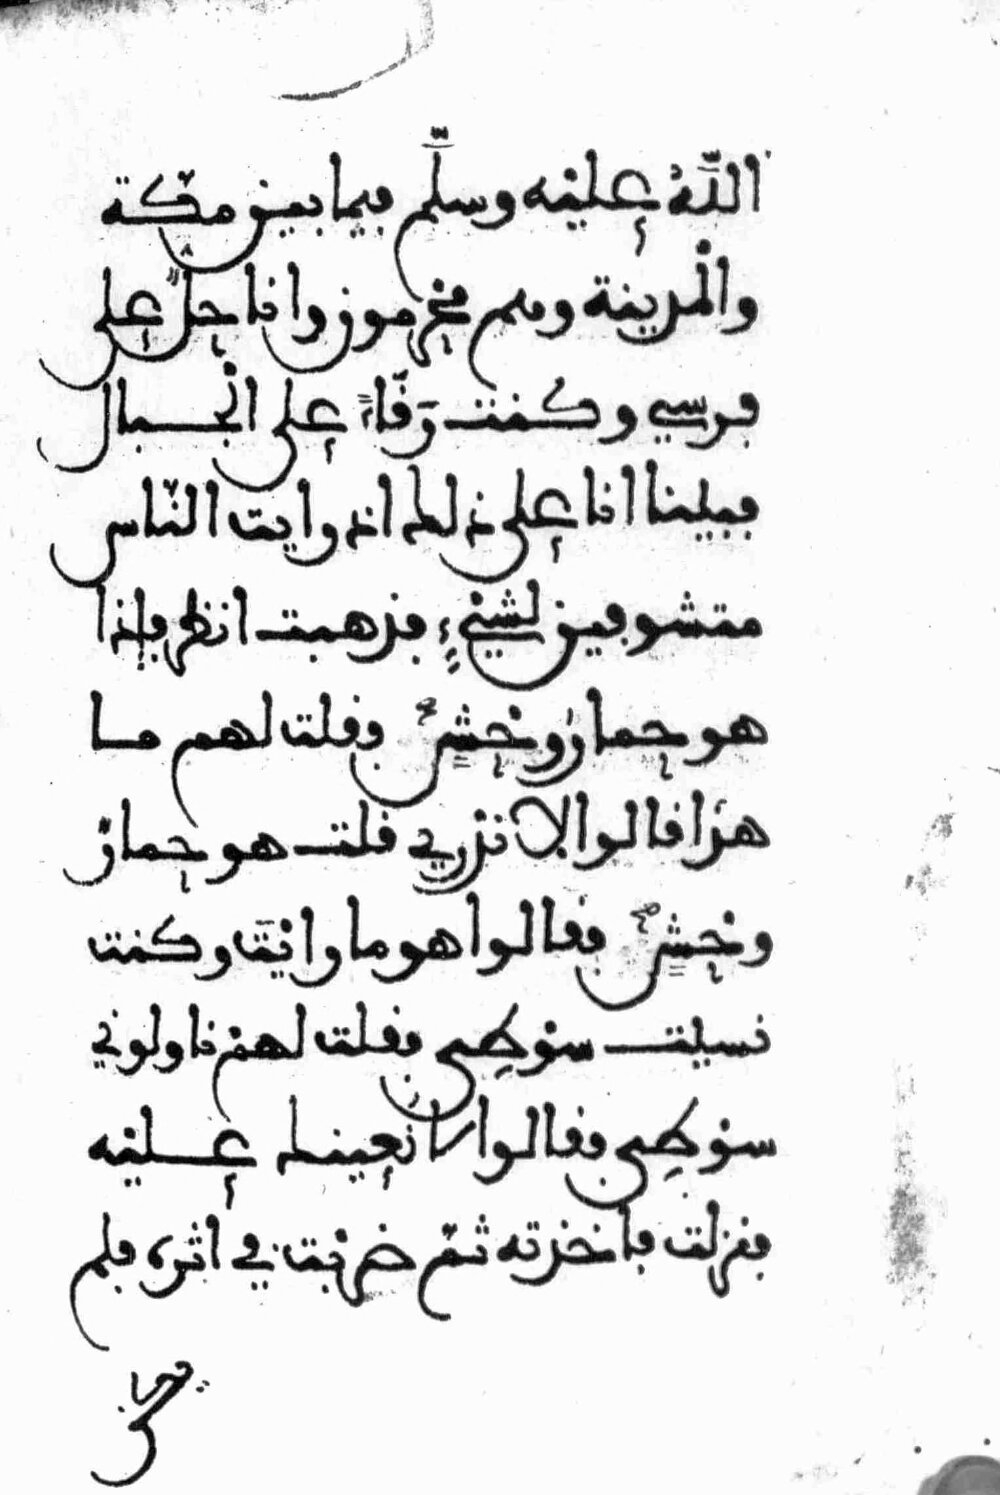 اللّٰهُ عليْه وسلّم فيما بين مكّة
والْمدينة وهم محْرمون وانا حلٌّ على
فرسي وكنت رَقّاءً على الْجبال
فبينا انا على ذلك اذ رايت النّاس
متشوفين لشيْءٍ فذهبت انظر فإذا
هو حمارُ وحْشٍ فقلت لهم ما
هذا قالوا لا ندْري قلت هو حمارٌ
وحْشيٌّ فقالوا هو ما رايْتَ وكنت
نسيت سوْطِي فقلت لهمْ ناولوني
سوْطِي فقالوا لا نعينك عليْه
فنزلت فاخذته ثمّ ضربْت في اثره فلم